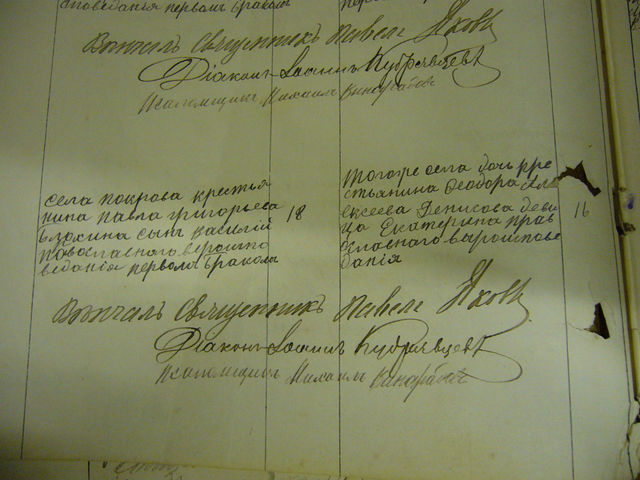 споведанья первымъ бракомъ
Венчалъ Священникъ Павелъ
Діаконъ Іоаннъ Кудрявцевъ
Псаломщикъ Михаилъ
села покрова крестья
нина павла григорьева
сынъ василий
православного вероиспо
ведания первымъ бракомъ
18
тогоже села дочь кре
стьянина Феодора Ал
ексеева Денисова деви
ца Екатерина прав
ославного вероиспове
дания
16
Венчалъ Священникъ Павелъ
Діаконъ Іоаннъ Кудрявцевъ
Псаломщикъ Михаилъ